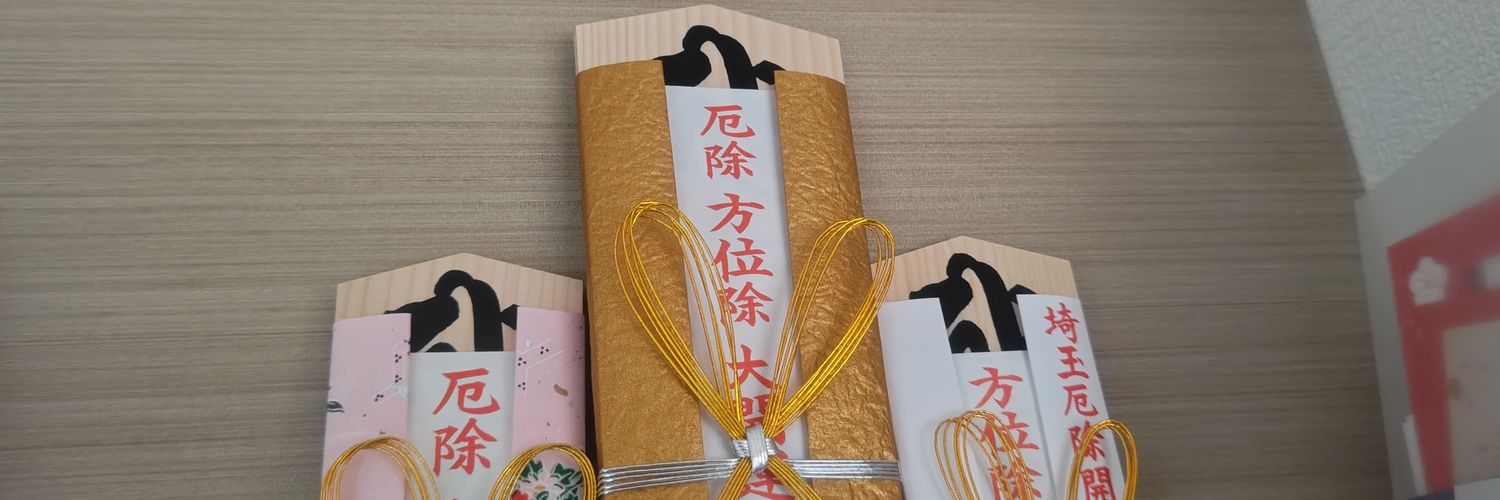 厄除
厄除 方位除 大開運
方位除
埼玉厄除開